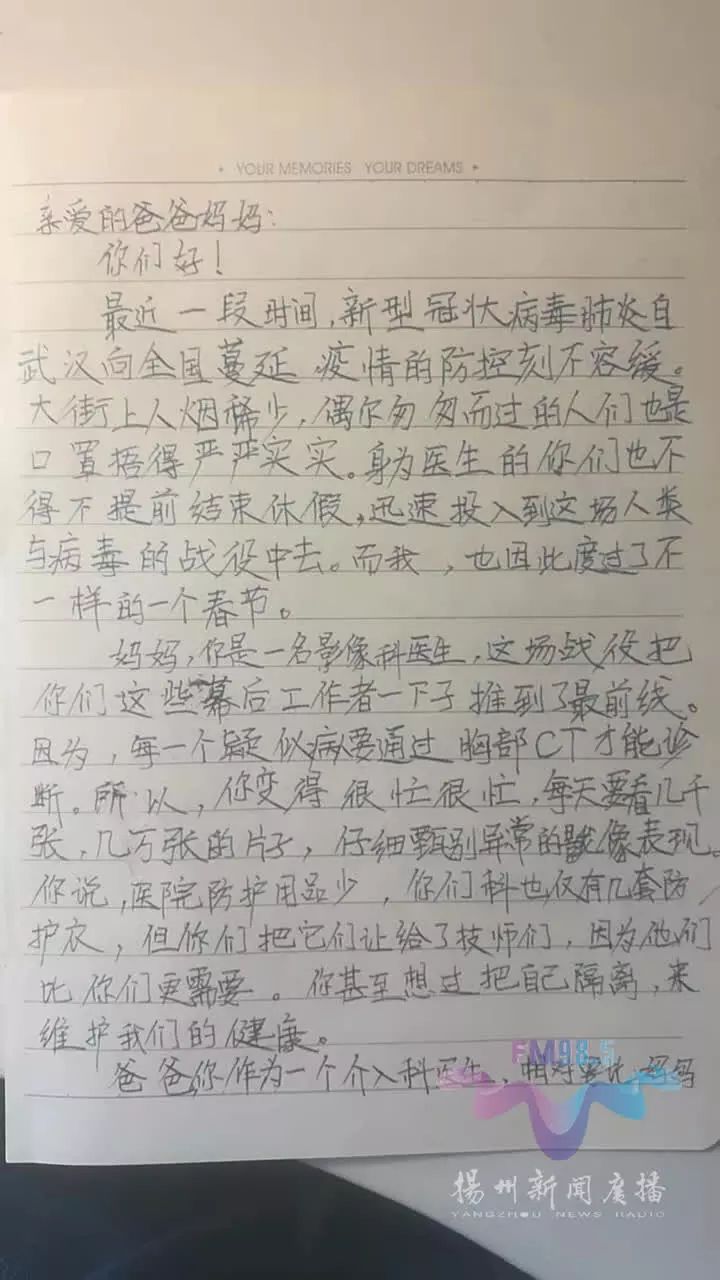 YOUR MEMORIES YOUR DREAMS
亲爱的爸爸妈妈：
你们好！
最近一段时间，新型冠状病毒肺炎自
武汉向全国蔓延，疫情的防控刻不容缓。
大街上人烟稀少，偶尔匆匆而过的人们也是
口罩捂得严严实实。身为医生的你们也不
得不提前结束休假，迅速投入到这场人类
与病毒的战役中去。而我，也因此度过了不
一样的一个春节。
妈妈，你是一名影像科医生，这场战役把
你们这些幕后工作者一下子推到了最前线。
因为，每一个疑似病要通过胸部CT才能诊
断。所以，你变得很忙很忙，每天要看几千
张，几万张的片子，仔细甄别异常的影像表现。
你说，医院防护用品少，你们科也仅有几套防
护衣，但你们把它们让给了技师们，因为他们
比你们更需要。你甚至想过把自己隔离，来
维护我们的健康。
爸爸，你作为一个介入科医生，相对要比妈妈
FM98.5
扬州新闻广播
YANGZHOU NEWS RADIO